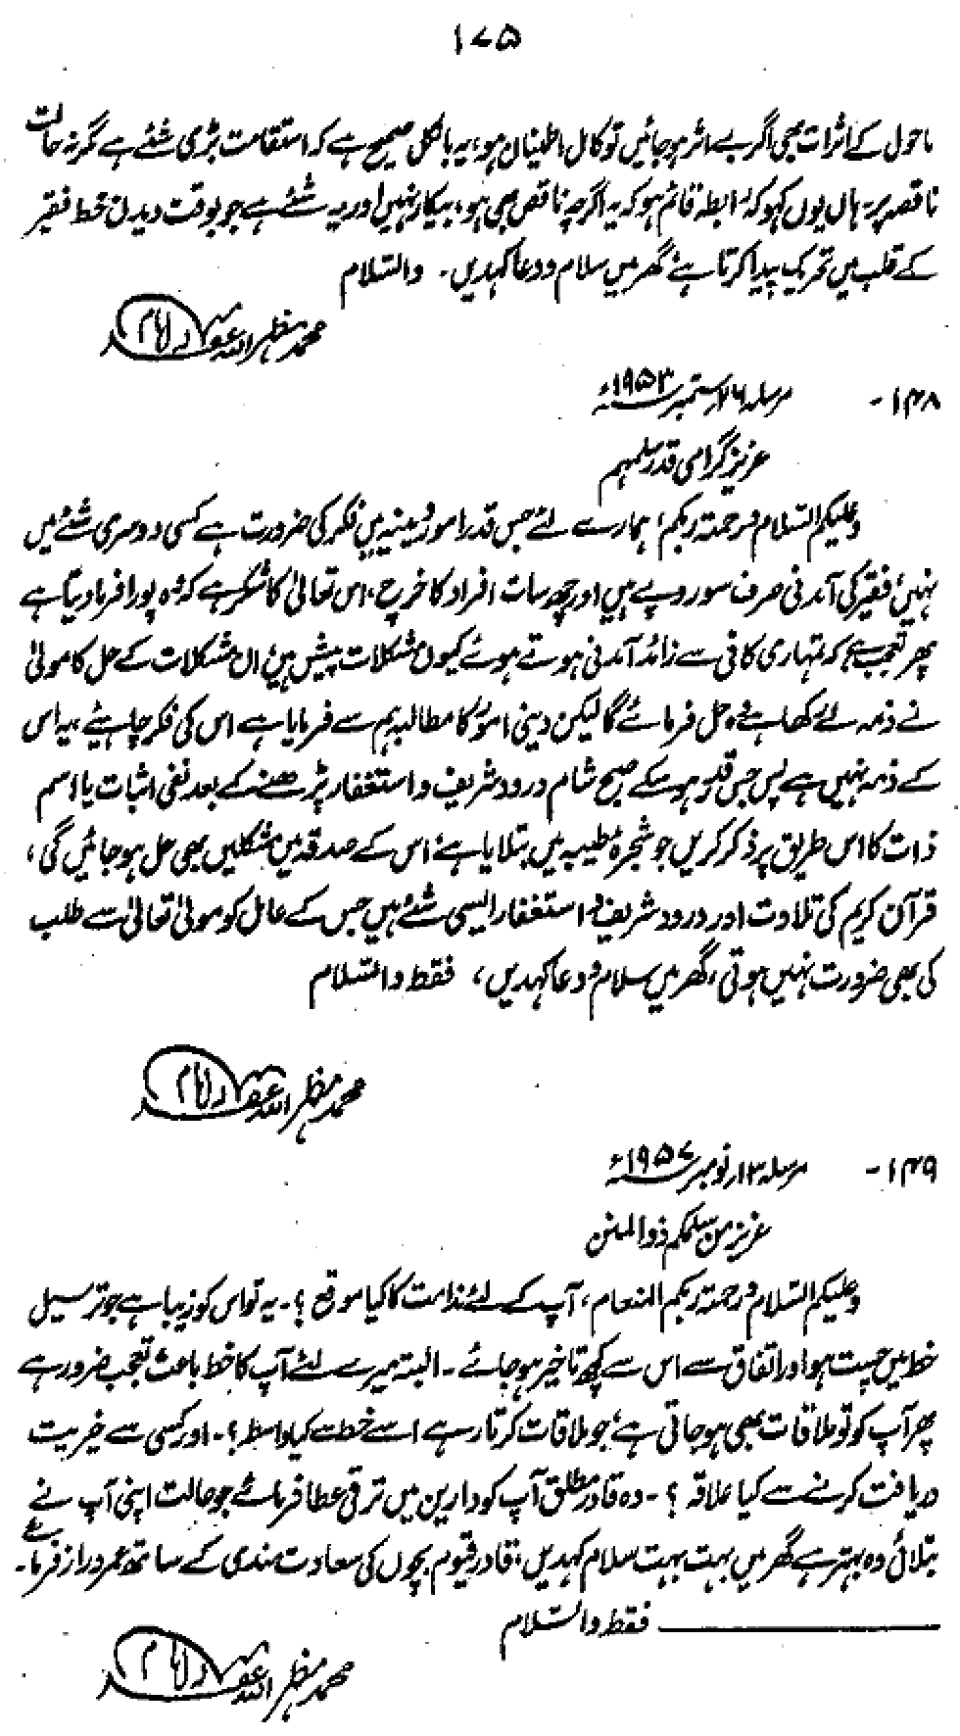 ۱۷۵
ماحول کے اثرات بھی اگر بے اثر ہو جائیں تو کامل اطمینان ہو، یہ بالکل صحیح ہے کہ استقامت بڑی شئے ہے مگر نہ حالت
ناقصہ پر۔ ہاں یوں کہو کہ رابطہ قائم ہو کہ یہ اگرچہ ناقص بھی ہو، بیکار نہیں اور یہ شئے ہے جو بوقت دیدن خط فقیر
کے قلب میں تحریک پیدا کرتا ہے، گھر میں سلام و دعا کہدیں۔ والسّلام
محمد مظہر اللہ غفرلہ امام
۱۴۸- مرسلہ ۲۶؍ستمبر ۱۹۵۳ء
عزیز گرامی قدر سلمہم
وعلیکم السّلام ورحمۃ ربکم! ہمارے لئے جس قدر امور دینیہ میں فکر کی ضرورت ہے کسی دوسری شئے میں
نہیں، فقیر کی آمدنی صرف سو روپے ہیں اور چھ سات افراد کا خرچ، اس تعالیٰ کا شکر ہے کہ وہ پورا فرما دیتا ہے
پھر تعجب ہے کہ تمہاری کافی سے زائد آمدنی ہوتے ہوئے کیوں مشکلات پیش ہیں، ان مشکلات کے حل کا مولیٰ
نے ذمہ لے رکھا ہے، وہ حل فرمائے گا لیکن دینی امور کا مطالبہ ہم سے فرمایا ہے اس کی فکر چاہیئے، یہ اس
کے ذمہ نہیں ہے پس جس قدر ہو سکے صبح شام درود شریف و استغفار پڑھنے کے بعد نفی اثبات یا اسم
ذات کا اس طریق پر ذکر کریں جو شجرہ طیبہ میں بتلایا ہے، اس کے صدقہ میں مشکلیں بھی حل ہو جائیں گی،
قرآن کریم کی تلاوت اور درود شریف و استغفار ایسی شئے ہیں جس کے عامل کو مولیٰ تعالیٰ سے طلب
کی بھی ضرورت نہیں ہوتی، گھر میں سلام و دعا کہدیں، فقط والسّلام
محمد مظہر اللہ غفرلہ امام
۱۴۹- مرسلہ ۱۳؍نومبر ۱۹۵۷ء
عزیز من سلمکم ذوالمنن
وعلیکم السّلام ورحمۃ ربکم المنعام، آپ کے لئے ندامت کا کیا موقع؟۔ یہ تو اس کو زیبا ہے جو ترسیل
خط میں چست ہو اور اتفاق سے اس سے کچھ تاخیر ہو جائے۔ البتہ میرے لئے آپ کا خط باعث تعجب ضرور ہے
پھر آپ کو تو ملاقات بھی ہو جاتی ہے، جو ملاقات کرتا رہے اسے خط سے کیا واسطہ؟۔ اور کسی سے خیریت
دریافت کرنے سے کیا علاقہ؟۔ وہ قادر مطلق آپ کو دارین میں ترقی عطا فرمائے جو حالت اپنی آپ نے
بتلائی وہ بہتر ہے گھر میں بہت بہت سلام کہدیں، قادر قیوم بچوں کی سعادت مندی کے ساتھ عمر دراز فرمائے۔
فقط والسّلام
محمد مظہر اللہ غفرلہ امام